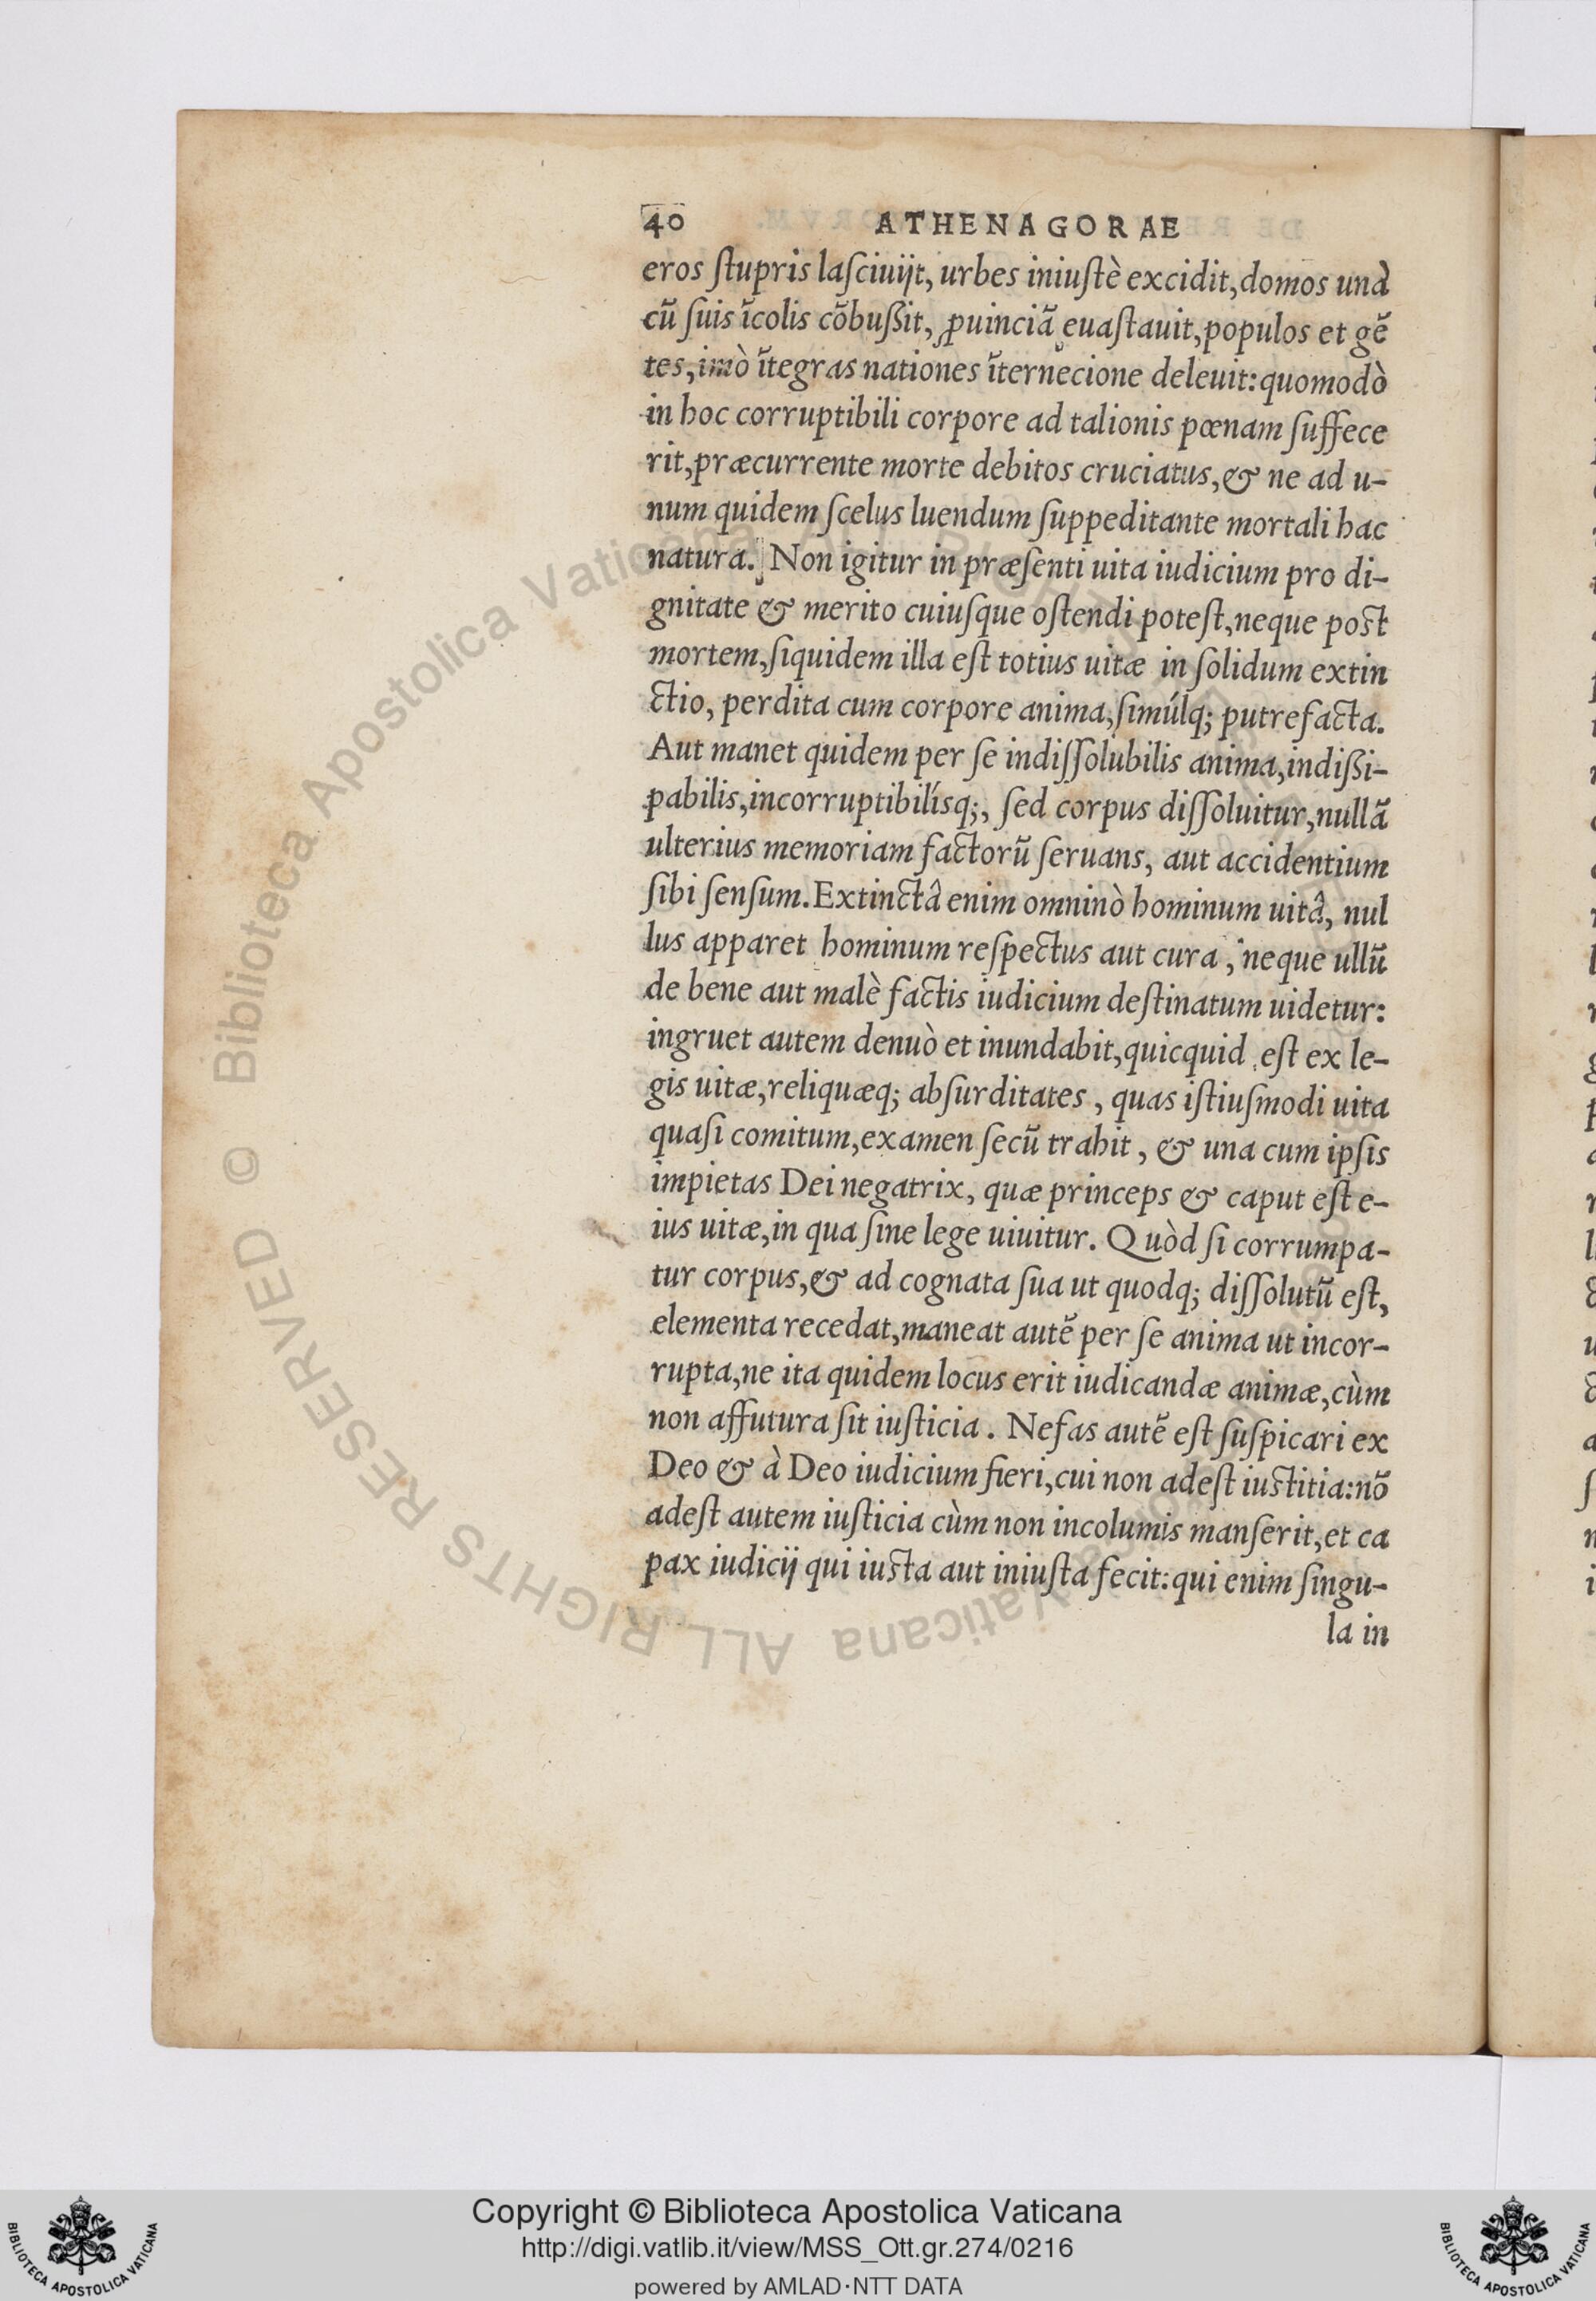 40 ATHENAGORAE
eros ſtupris laſciuijt, urbes iniuſtè excidit, domos unà
cũ ſuis ĩcolis cõbußit, ꝓuinciã euaſtauit, populos et gẽ
tes, imò ĩtegras nationes ĩternecione deleuit: quomodò
in hoc corruptibili corpore ad talionis pœnam ſuffece
rit, præcurrente morte debitos cruciatus, & ne ad u-
num quidem ſcelus luendum ſuppeditante mortali hac
natura. Non igitur in præſenti uita iudicium pro di-
gnitate & merito cuiuſque oſtendi poteſt, neque poſt
mortem, ſiquidem illa eſt totius uitæ in ſolidum extin
ctio, perdita cum corpore anima, ſimúlq; putrefacta.
Aut manet quidem per ſe indiſſolubilis anima, indißi-
pabilis, incorruptibilísq;, ſed corpus diſſoluitur, nullã
ulterius memoriam factorũ ſeruans, aut accidentium
ſibi ſenſum. Extinctâ enim omninò hominum uitâ, nul
lus apparet hominum reſpectus aut cura, neque ullũ
de bene aut malè factis iudicium deſtinatum uidetur:
ingruet autem denuò et inundabit, quicquid eſt ex le-
gis uitæ, reliquæq; abſurditates, quas iſtiuſmodi uita
quaſi comitum, examen ſecũ trahit, & una cum ipſis
impietas Dei negatrix, quæ princeps & caput eſt e-
ius uitæ, in qua ſine lege uiuitur. Quòd ſi corrumpa-
tur corpus, & ad cognata ſua ut quodq; diſſolutũ eſt,
elementa recedat, maneat autẽ per ſe anima ut incor-
rupta, ne ita quidem locus erit iudicandæ animæ, cùm
non affutura ſit iuſticia. Nefas autẽ eſt ſuſpicari ex
Deo & à Deo iudicium fieri, cui non adeſt iuſtitia: nõ
adeſt autem iuſticia cùm non incolumis manſerit, et ca
pax iudicij qui iuſta aut iniuſta fecit: qui enim ſingu-
la in
© Biblioteca Apostolica Vaticana ALL RIGHTS RESERVED
Copyright © Biblioteca Apostolica Vaticana
http://digi.vatlib.it/view/MSS_Ott.gr.274/0216
powered by AMLAD·NTT DATA
BIBLIOTECA APOSTOLICA VATICANA
BIBLIOTECA APOSTOLICA VATICANA